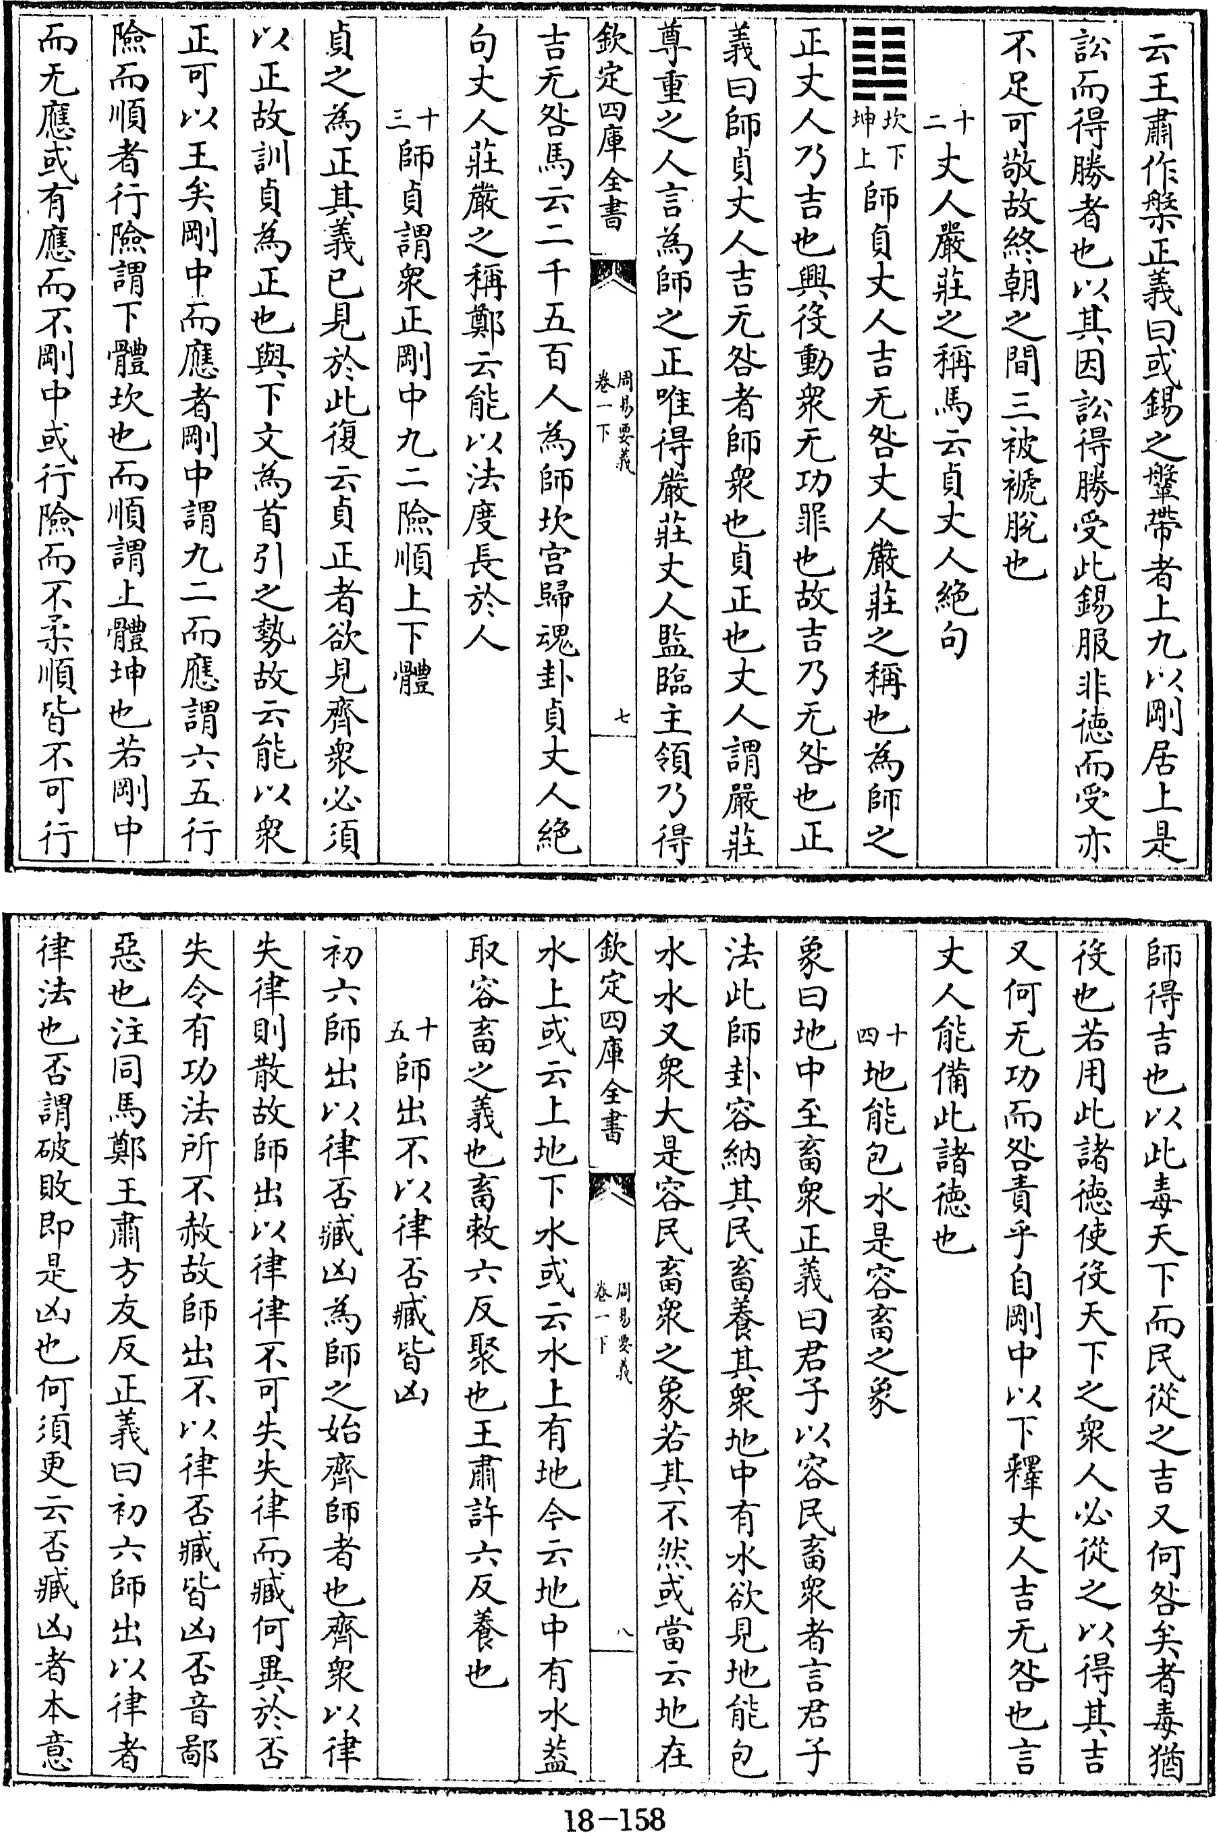 云王肅作槃正義曰或錫之鞶帶者上九以剛居上是
訟而得勝者也以其因訟得勝受此錫服非徳而受亦
不足可敬故終朝之間三被褫脫也
十二丈人嚴莊之稱馬云貞丈人絶句
䷆坎下坤上師貞丈人吉无咎丈人嚴莊之稱也為師之
正丈人乃吉也興役動衆无功罪也故吉乃无咎也正
義曰師貞丈人吉无咎者師衆也貞正也丈人謂嚴莊
尊重之人言為師之正唯得嚴莊丈人監臨主領乃得
欽定四庫全書 周易要義卷一下 七
吉无咎馬云二千五百人為師坎宫歸魂卦貞丈人絶
句丈人莊嚴之稱鄭云能以法度長於人
十三師貞謂衆正剛中九二險順上下體
貞之為正其義已見於此復云貞正者欲見齊衆必須
以正故訓貞為正也與下文為首引之勢故云能以衆
正可以王矣剛中而應者剛中謂九二而應謂六五行
險而順者行險謂下體坎也而順謂上體坤也若剛中
而无應或有應而不剛中或行險而不柔順皆不可行
師得吉也以此毒天下而民從之吉又何咎矣者毒猶
役也若用此諸徳使役天下之衆人必從之以得其吉
又何无功而咎責乎自剛中以下釋丈人吉无咎也言
丈人能備此諸徳也
十四地能包水是容畜之象
象曰地中至畜衆正義曰君子以容民畜衆者言君子
法此師卦容納其民畜養其衆地中有水欲見地能包
水水又衆大是容民畜衆之象若其不然或當云地在
欽定四庫全書 周易要義卷一下 八
水上或云上地下水或云水上有地今云地中有水葢
取容畜之義也畜敕六反聚也王肅許六反養也
十五師出不以律否臧皆凶
初六師出以律否臧凶為師之始齊師者也齊衆以律
失律則散故師出以律律不可失失律而臧何異於否
失令有功法所不赦故師出不以律否臧皆凶否音鄙
惡也注同馬鄭王肅方友反正義曰初六師出以律者
律法也否謂破敗即是凶也何須更云否臧凶者本意
18-158